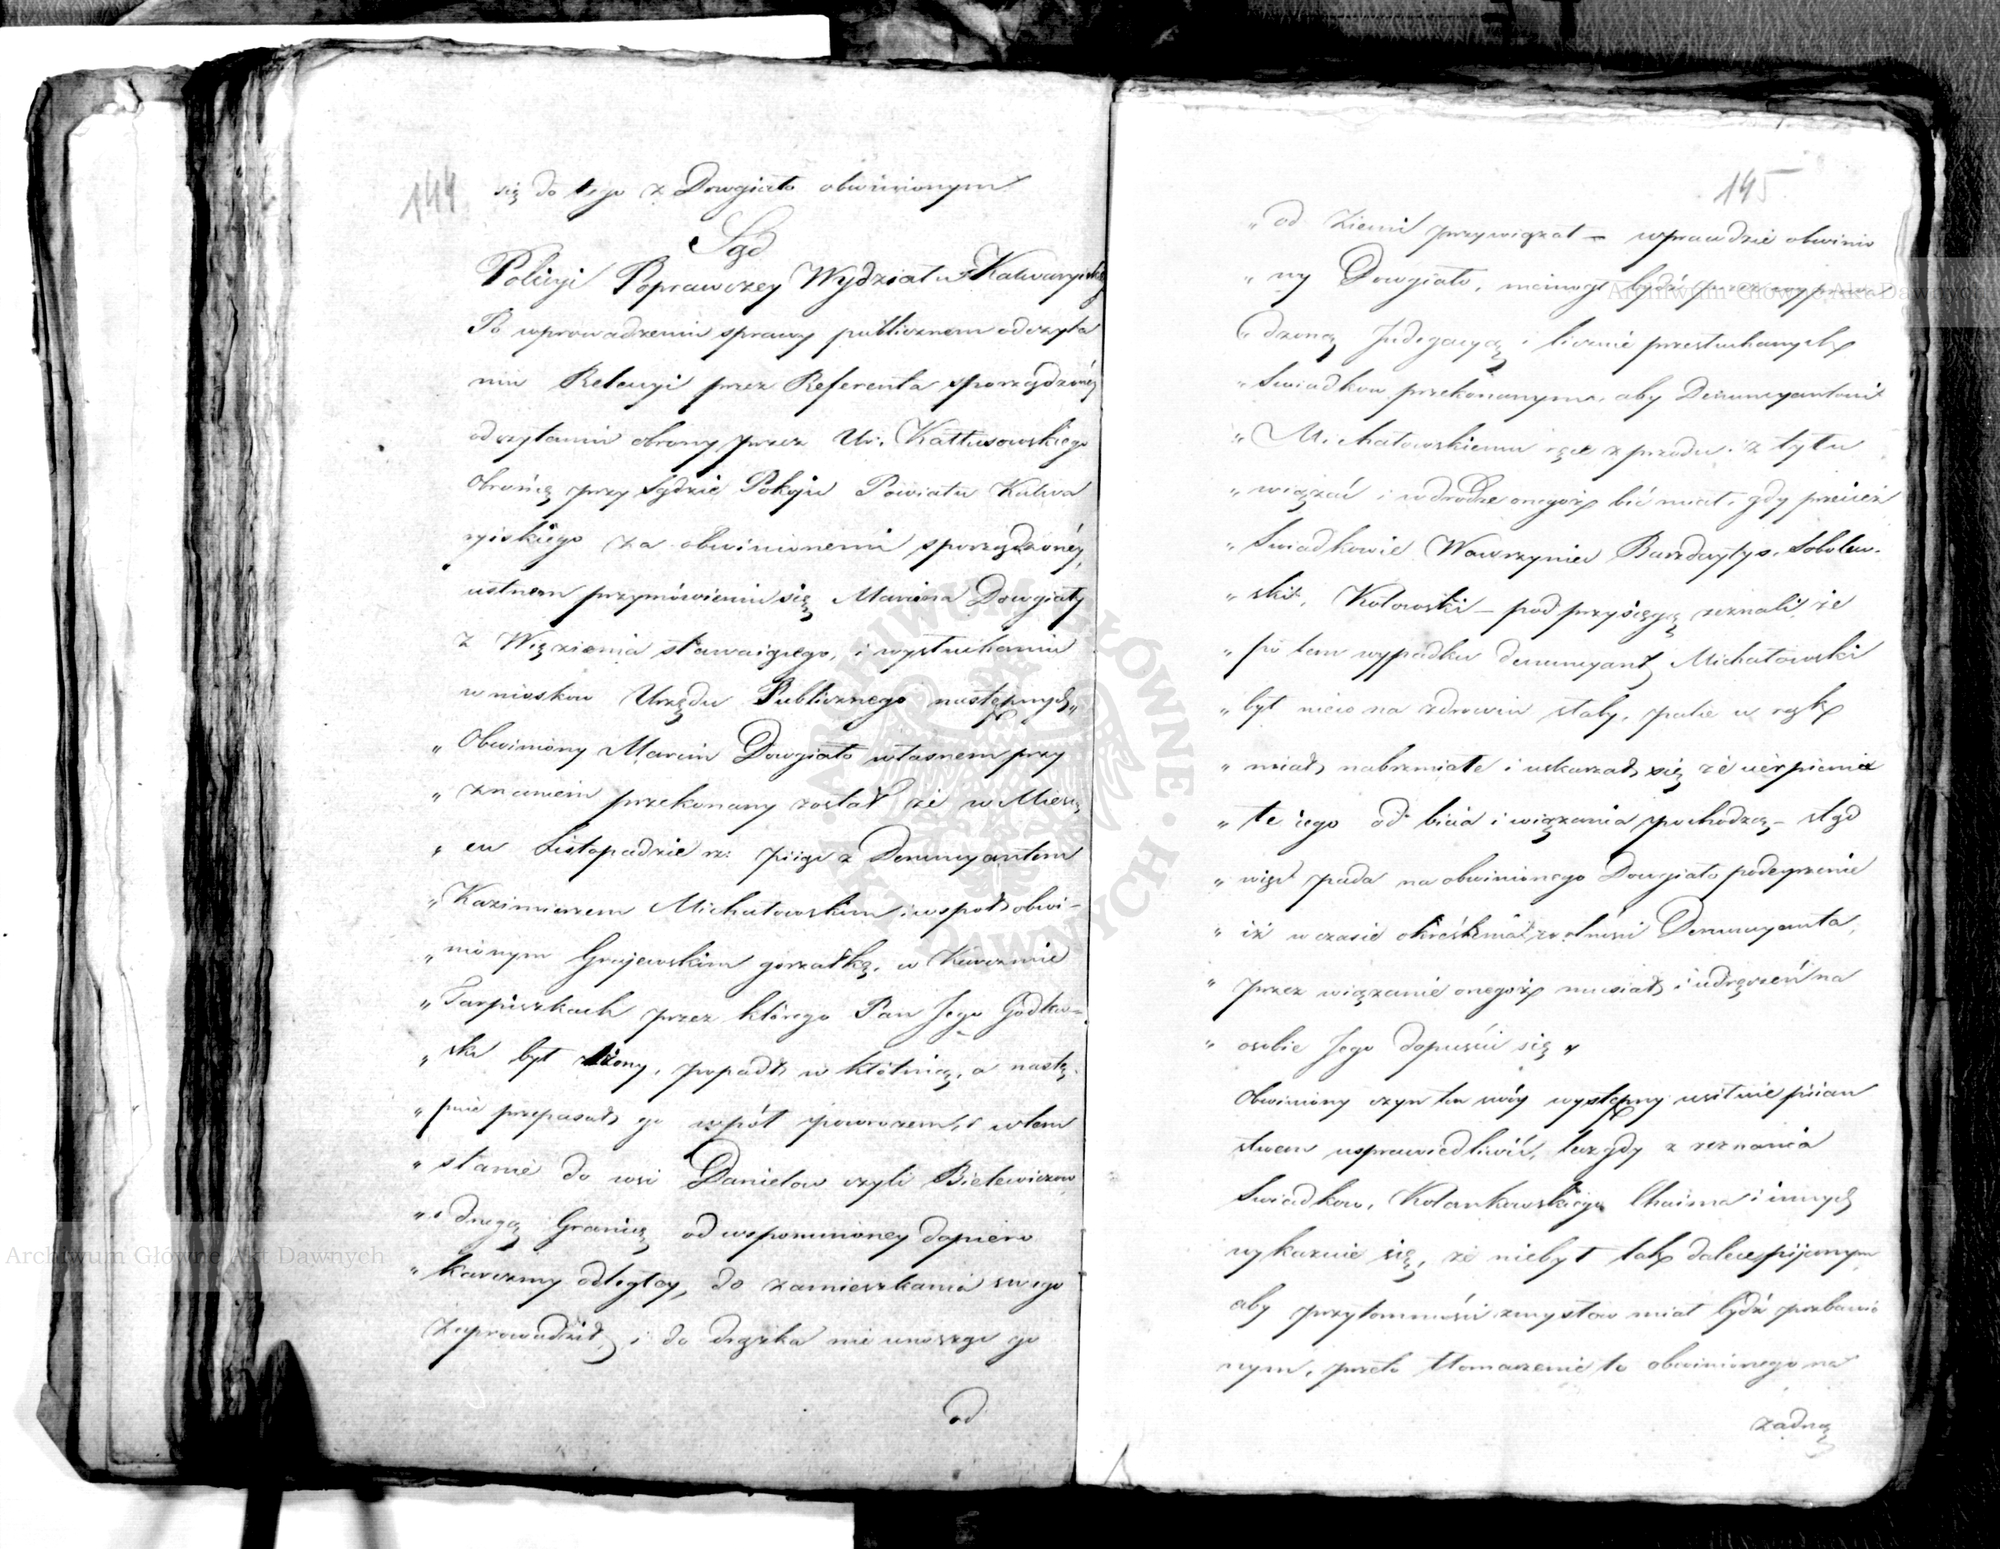 144
się do tego z Dowgiałło obwinionym
Sąd
Policyi Poprawczey Wydziału Kalwaryiskiego
Po wprowadzeniu sprawy publicznem odczyta
niu Relacyi przez Referenta sporządzonéy
odczytaniu obrony przez Ur.
Obrońcę przy Sądzie Pokoju Powiatu Kalwa
ryiskiego za obwinionemi sporządzonéy,
ustnem przymówieniu się Marcina Dowgiałły
z Więzienia stawaiącego, i wysłuchaniu
wniosków Urzędu Publicznego następnych„
„ Obwiniony Marcin Dowgiałło własnem przy
„ znaniem przekonany został że w Miesią
„ cu Listopadzie rz: pijąc z Denuncyantem
„ Kazimierzem Michałowskim i współobwi-
„ nionym Grajewskim gorzałkę, w Karczmie
„ Tarpiszkach przez którego Pan Jego Godlew-
„ ski był, popadł w kłótnią, a nastę-
„ pnie przepasał go wpół powrozem, i w tem
„ stanie do wsi Danielow czyli Bielewiczow
„ o drugą Granicę od wspomnioney dopiero
„ karczmy odległey, do zamieszkania swego
zaprowadził, i do drążka nie unosząc go
od
145
„ od Ziemi przywiązał – wprawdzie obwinio
„ ny Dowgiałło, niemógł bydź przez wyprow
„ dzoną Indegacyą i licznie przesłuchanych
„ Swiadkow przekonanym, aby Denuncyantowi
„ Michałowskiemu ręce z przodu i z tyłu
„ wiązać i w drodze onegoż bić miał, gdy przecież
„ Swiadkowie Wawrzyniec Burzdaytys, Sobolew-
„ ski, Kotowski – pod przysięgą zeznali, że
„ po tem wypadku denuncyant Michałowski
„ był nieco na zdrowiu słaby, palce w ręk
„ miał nabrzmiałe i uskarzał się że cierpienia
„ te iego od bicia i wiązania pochodzą – stąd
„ więc pada na obwinionego Dowgiałło podeyrzenie
„ iż w czasie określenia wolności Denuncyanta,
„ przez wiązanie onegoż musiał i udręczeń na
„ osobie Jego dopuścić się „
Obwiniony czyn ten swóy występny usiłuie pijań
stwem usprawiedliwić, lecz gdy z zeznania
Swiadkow, Kolankowskiego Chaima i innych
wykazuie się, że niebył tak dalece pijanym
aby przytomności zmysłów miał bydź pozbawio
nym, przeto tłomaczenie to obwinionego na
żadną
Archiwum Główne Akt Dawnych
Archiwum Główne Akt Dawnych
ARCHIWUM GŁÓWNE AKT DAWNYCH